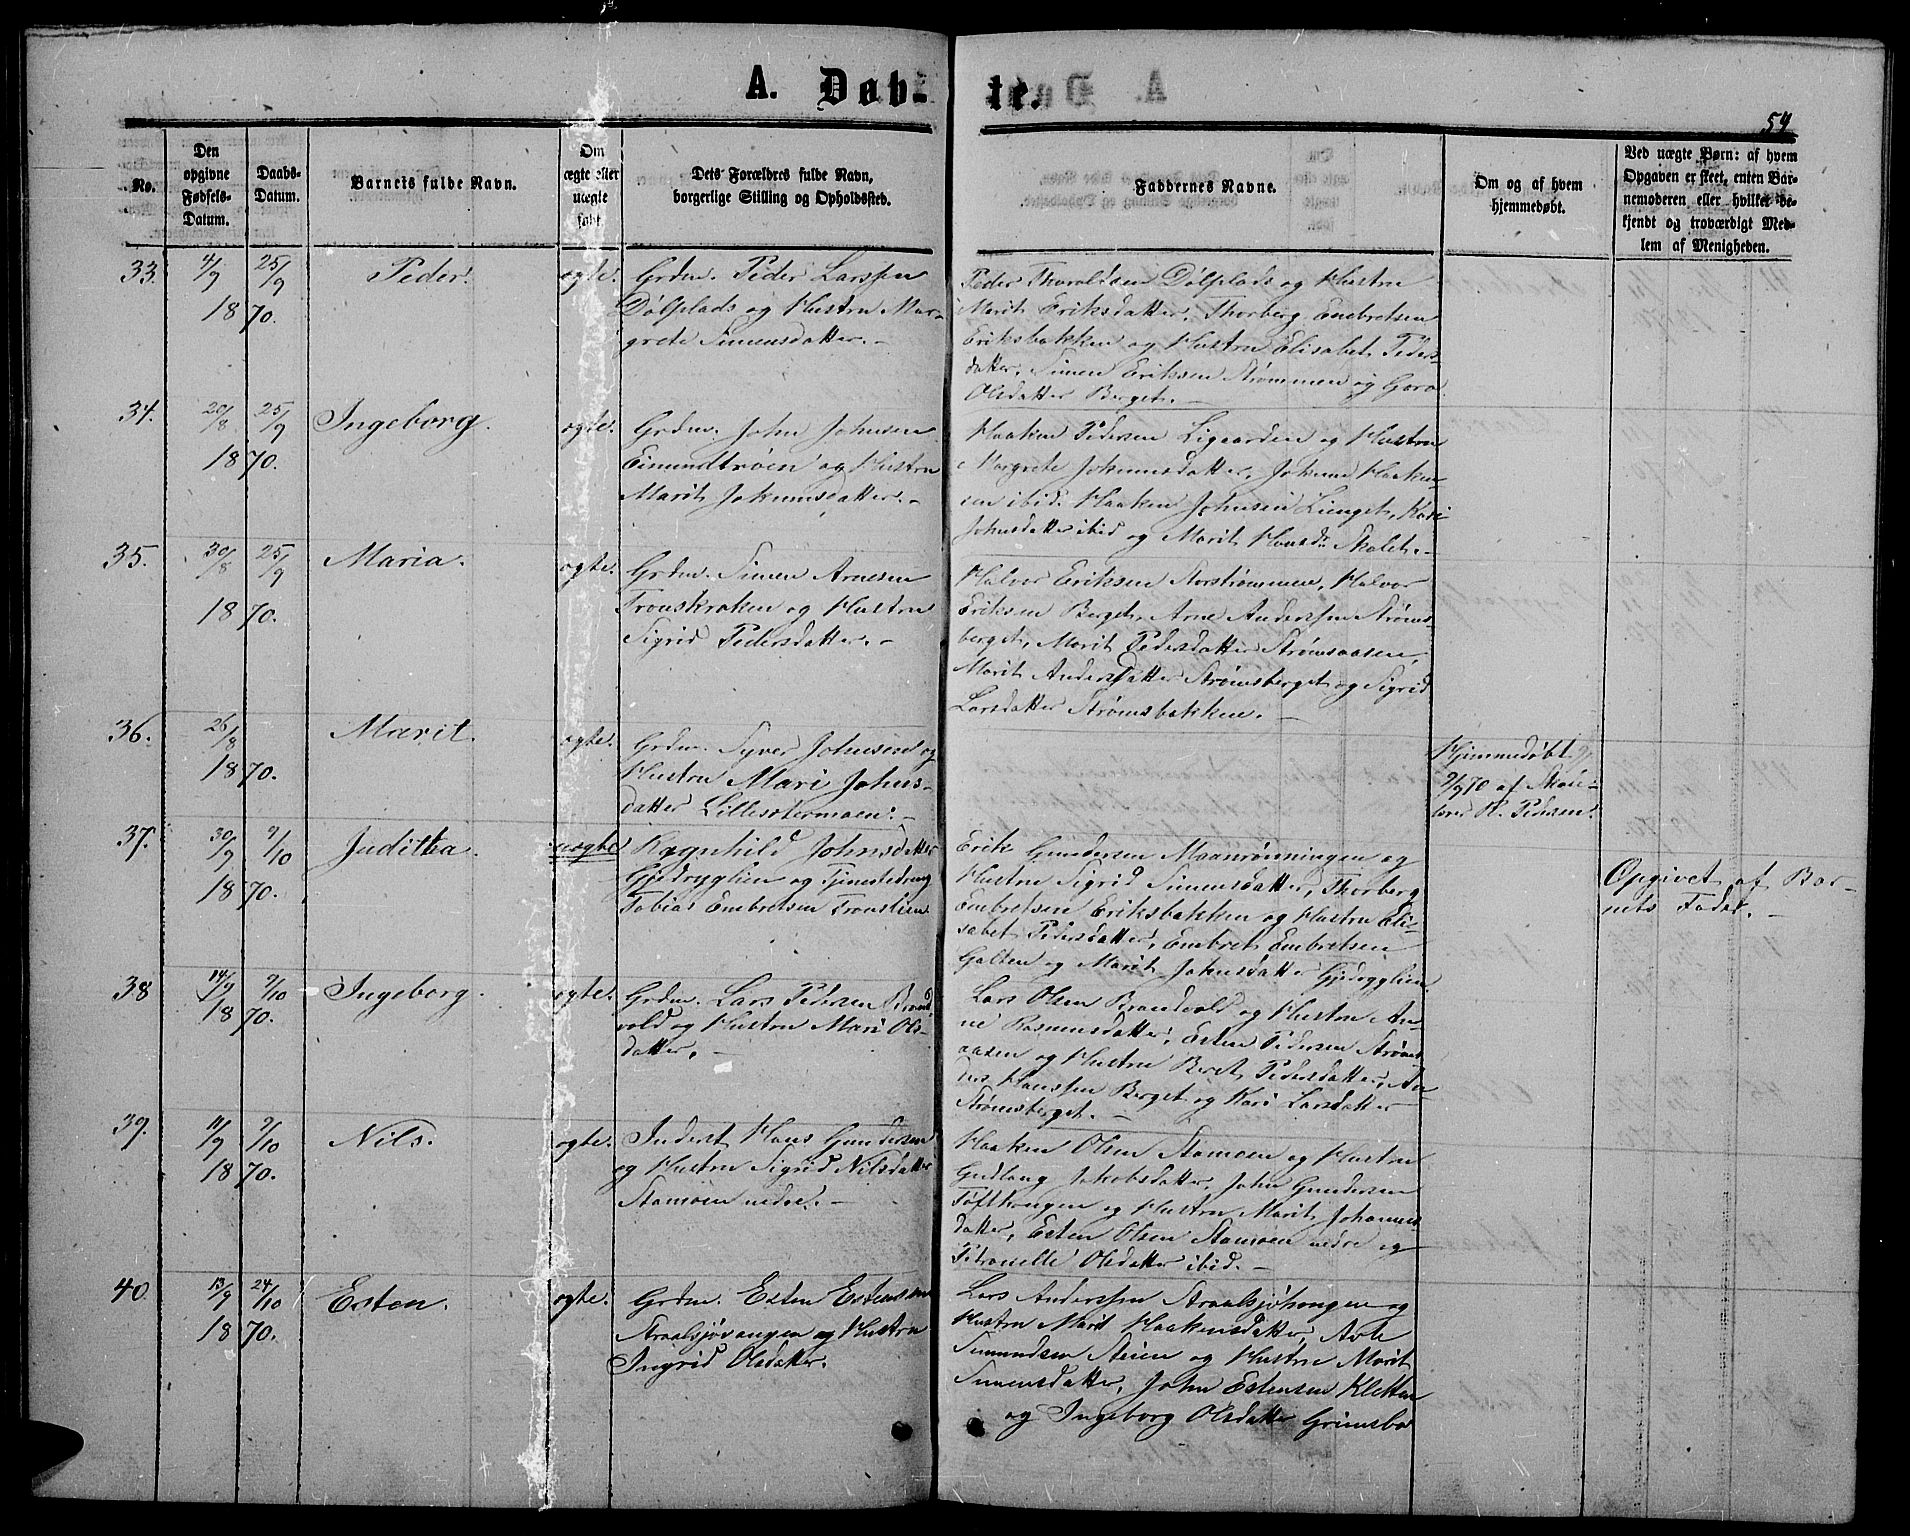 A. Døbte.
59
No.
Den opgivne Fødsels-Datum.
Daabs-Datum.
Barnets fulde Navn.
Om ægte eller uægte født.
Dets Forældres fulde Navn,
borgerlige Stilling og Opholdssted.
Faddernes Navne.
Om og af hvem
hjemmedøbt.
Ved uægte Børn: af hvem
Opgaven er skeet, enten Bar-
nemoderen eller hvilket be-
kjendt og troværdigt Med-
lem af Menigheden.
33. 4/9 1870. 25/9 Peder. ægte.
Grdm. Peder Larssen
Dølplads og Hustru Mar-
grete Simensdatter. -
Peder Tharaldsen Dølplads og Hustru
Marit Eriksdatter, Thorberg Embretsen
Eriksbakken og Hustru Elisabet Peders-
datter, Simen Eriksen Strømmen og Goro
Olsdatter Berget. -
34. 20/8 1870. 25/9 Ingeborg. ægte.
Grdm. John Johnsen
Eimundtrøen og Hustru
Marit Johannesdatter. -
Haaken Pedersen Ligaarden og Hustru
Margrete Johannesdatter, Johannes Haaken-
sen ibid. Haaken Johnsen Lienget, Kari
Johnsdatter ibid og Marit Hansdr. Skolet. -
35. 30/8 1870. 25/9 Maria. ægte.
Grdm. Simen Arnesen
Tronskroken og Hustru
Sigrid Pedersdatter. -
Halvor Eriksen Storstrømmen, Halvor
Eriksen Berget, Arne Anderssen Strøms-
berget, Marit Pedersdatter Strømsaasen,
Marit Andersdatter Strømsberget og Sigrid
Larsdatter Strømsbakken. -
36. 26/8 1870. Marit. ægte.
Grdm. Syver Johnsen og
Hustru Mari Johns-
datter Lillestermoen. -
Hjemmedøbt
9/9 70 af Skole-
lærer H. Pedersen.
37. 30/9 1870. 9/10 Juditha. uægte
Ragnhild Johnsdatter
Gjedryglien og Tjenestedreng
Tobias Embretsen Tronslien.
Erik Gundersen Maanrønningen og
Hustru Sigrid Simensdatter, Thorberg
Embretsen Eriksbakken og Hustru Eli-
sabet Pedersdatter, Embret Embretsen
Galten og Marit Johnsdatter Gjedryglien.
Opgivet af Bar-
nets Fader. -
38 14/9 1870. 9/10 Ingeborg. ægte.
Grdm. Lars Pedersen Brænd-
vold og Hustru Mari Ols-
datter. -
Lars Olsen Brændvold og Hustru An-
ne Rasmusdatter, Esten Pedersen Strøms-
aasen og Hustru Beret Pedersdatter, An-
ders Hanssen Berget og Kari Larsdatter
Strømsberget. -
39. 11/9 1870. 9/10 Nils. ægte.
Inderst Hans Gundersen
og Hustru Sigrid Nilsdatter
Stamoen nedre. -
Haaken Olsen Stamoen og Hustru
Gudlaug Jakobsdatter, John Gundersen
Tøfthaugen og Hustru Marit Johannes-
datter, Esten Olsen Stamoen nedre og
Petronelle Olsdatter ibid. -
40. 13/9 1870. 24/10 Esten. ægte.
Grdm. Esten Estensen
Straalsjøvangen og Hustru
Ingrid Olsdatter.
Lars Anderssen Straalsjøhaugen og
Hustru Marit Haakensdatter,
Simensen Steien og Hustru Marit
Simensdatter, John Estensen Kletten
og Ingeborg Olsdatter Grimsbo